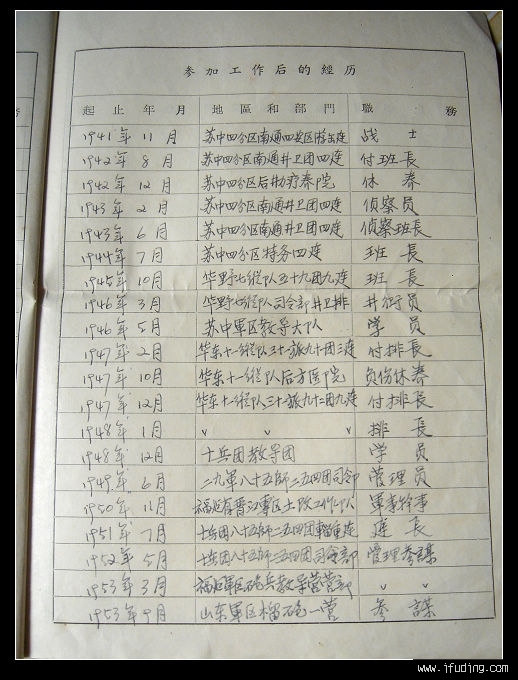 参加工作后的經历
起止年月 地區和部門 職務
1941年11月 苏中四分区南通四安区游击连 战士
1942年8月 苏中四分区南通井卫团四连 付班長
1942年12月 苏中四分区后勤疗养院 休养
1943年2月 苏中四分区南通井卫团四连 侦察员
1943年6月 苏中四分区南通井卫团四连 侦察班長
1944年7月 苏中四分区特务四连 班長
1945年10月 华野七纵队五十九团九连 班長
1946年3月 华野七纵队司令部井卫排 井衍员
1946年5月 苏中軍区教导大队 学员
1947年2月 华东十一纵队三十一旅九十团三连 付排長
1947年10月 华东十一纵队后方医院 负伤休养
1947年12月 华东十一纵队三十一旅九十二团九连 付排長
1948年1月 〃 〃 〃 排長
1948年12月 十兵团教导团 学员
1949年6月 二九軍八十五師二五四团司令部 管理员
1950年11月 福建省晋江軍区土改工作队 軍事幹事
1951年7月 十兵团八十五師二五四团輜重连 連長
1952年5月 十兵团八十五師二五四团司令部 管理参謀
1953年3月 福建軍区砲兵教导营营部 〃 〃
1953年9月 山东軍区榴砲一营 参謀
www.jfuding.com